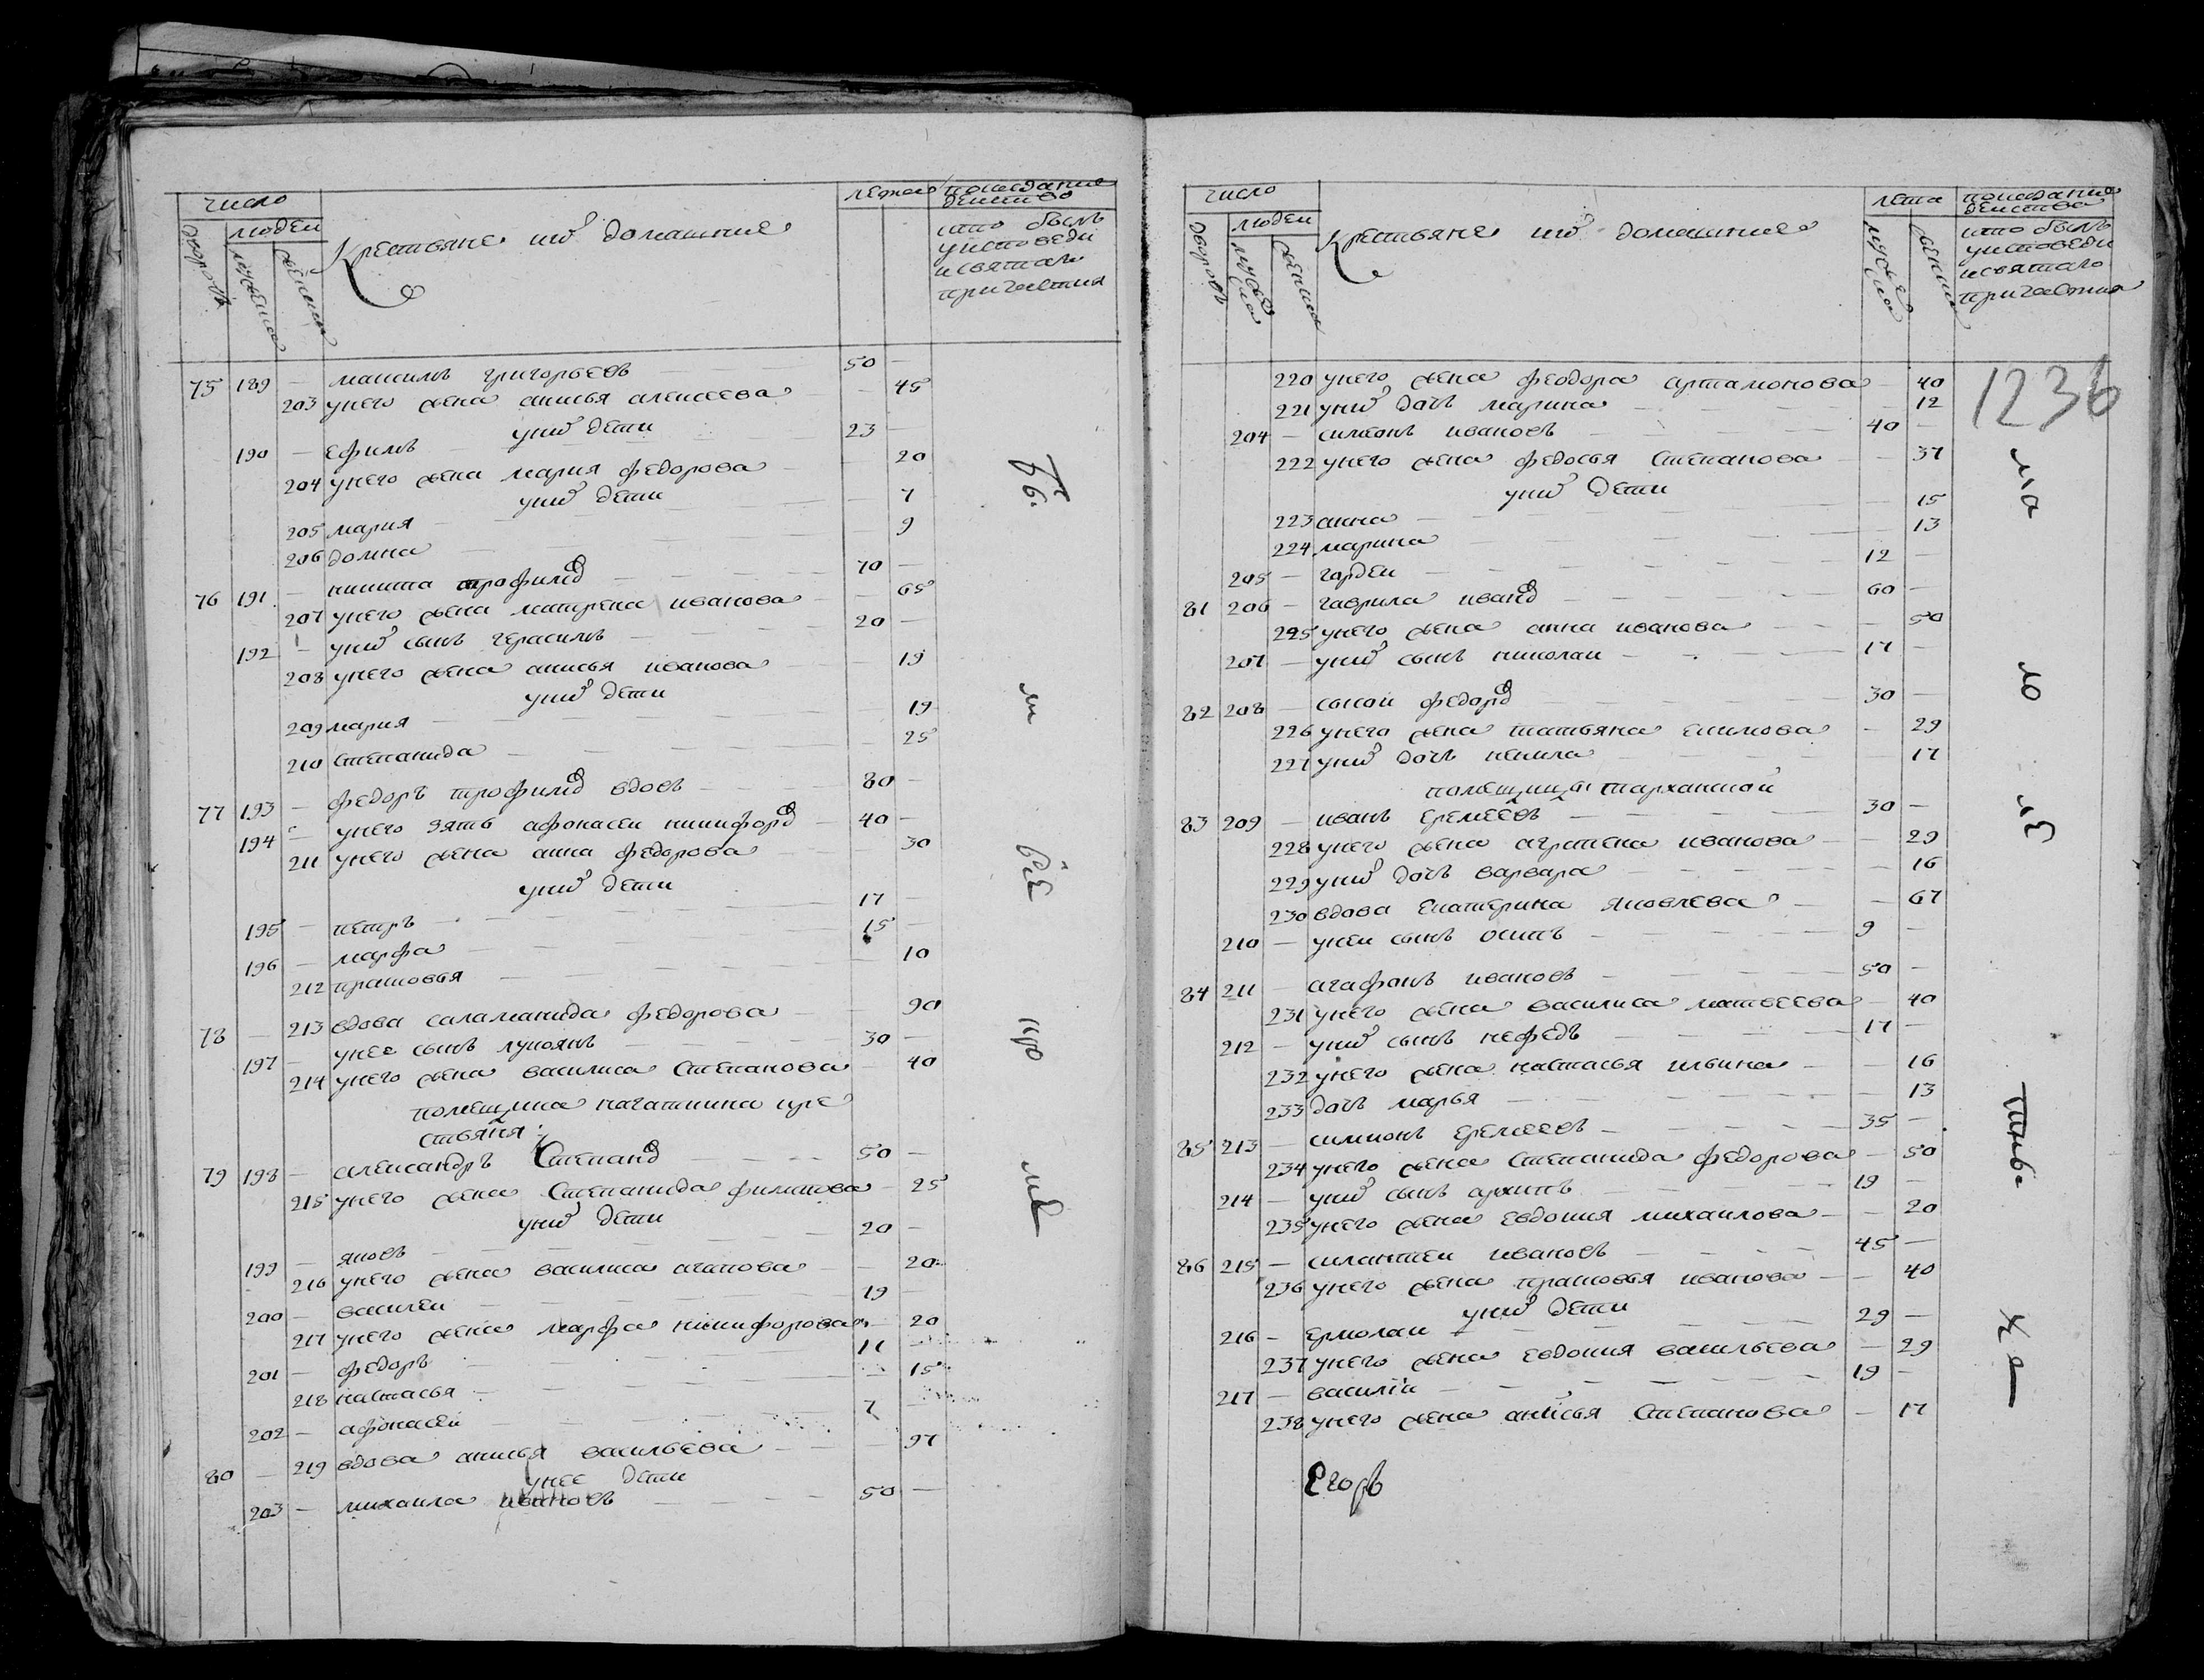 число
людей
дворовъ
мужеска
женска
Крестьяне ихъ домашние
лета
показание действо
кто былъ
у исповеди
и святаго
причастия
75 189 — максимъ григорьевъ 50 —
203 у него жена анисья алексеева — 45
у них дети
190 — ефимъ 23 —
204 у него жена мария федорова — 20
у них дети
205 мария — 7
206 домна — 9
76 191 — никита трофимов 70 —
207 у него жена матрена иванова — 65
192 — у них сынъ герасимъ 20 —
208 у него жена анисья иванова — 19
у них дети
209 мария — 19
210 степанида — 25
77 193 — федоръ трофимов вдовъ 80 —
194 — у него зять афонасеи никифоров 40 —
211 у него жена анна федорова — 30
у них дети
195 — петръ 17 —
196 — марфа 15 —
212 прасковья — 10
78 — 213 вдова саламанида федорова — 90
197 — у нее сынъ лукоянъ 30 —
214 у него жена василиса степанова — 40
помещика качаткина кре
стьяня:
79 198 — александръ Степанов 50 —
215 у него жена Степанида филипова — 25
у них дети
199 — яковъ 20 —
216 у него жена василиса агапова — 20
200 — василеи 19 —
217 у него жена марфа никифорова — 20
201 — федоръ 11 —
218 настасья — 15
202 — афонасеи 7 —
80 — 219 вдова анисья васильева — 97
у нее дети
203 — михаила ивановъ 50 —
число
людей
дворовъ
мужеска
женска
Крестьяне ихъ домашние
лета
мужеска
женска
показание действа
кто былъ
у исповеди
и святаго
причастия
1236
220 у него жена феодора артамонова — 40
221 у них дочь марина — 12
204 — симеонъ ивановъ 40 —
222 у него жена федосья Степанова — 37
у них дети
223 анна — 15
224 марина — 13
205 — гордеи 12 —
81 206 — гаврила иванов 60 —
225 у него жена анна иванова — 50
207 — у них сынъ николаи 17 —
82 208 — сысои федоров 30 —
226 у него жена татьяна екимова — 29
227 у них дочь ненила — 17
помещицы тарханской
83 209 — иванъ еремеевъ 30 —
228 у него жена аграпена иванова — 29
229 у них дочь варвара — 16
230 вдова екатерина яковлева — 67
210 — у неи сынъ осипъ 9 —
84 211 — агафонъ ивановъ 50 —
231 у него жена василиса матвеева — 40
212 — у них сынъ нефедъ 17 —
232 у него жена настасья ильина — 16
233 дочь марья — 13
85 213 — симионъ еремеевъ 35 —
234 у него жена Степанида федорова — 50
214 — у них сынъ архипъ 19 —
235 у него жена евдокия михаилова — 20
86 215 — силантеи ивановъ 45 —
236 у него жена прасковья иванова — 40
у них дети
216 — ермолаи 29 —
237 у него жена евдокия васильева — 29
217 — василiи 19 —
238 у него жена анисья Степанова — 17
Егоръ